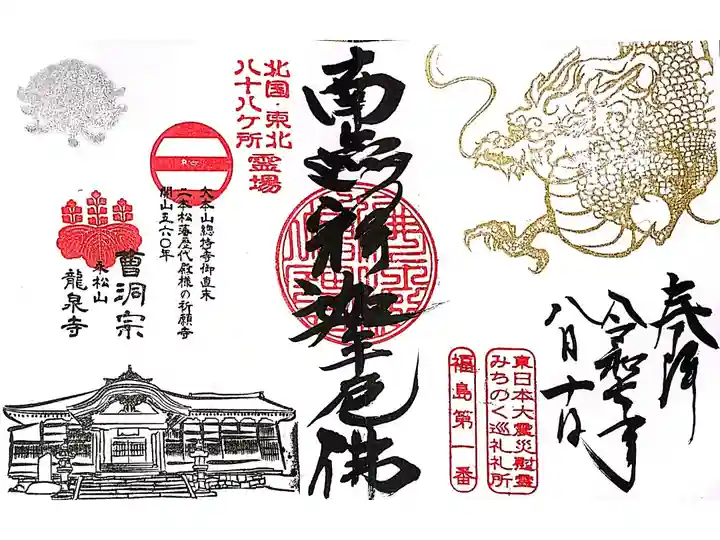 奉拝
令和七年
八月十日
東日本大震災慰霊
みちのく巡礼札所
福島第一番
北国・東北
八十八ケ所
霊場
大本山總持寺御直末
二本松藩歴代殿様の祈願寺
開山五六〇年
曹洞宗
永松山
龍泉寺